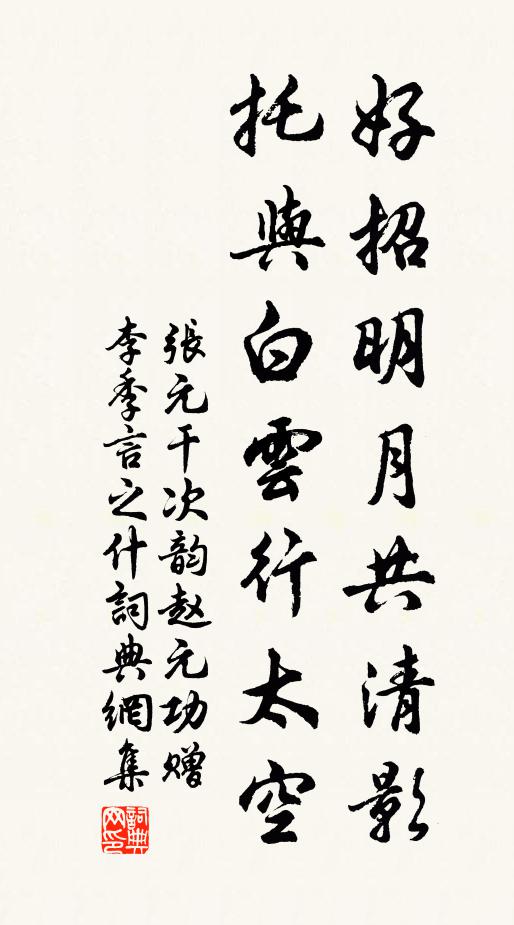 好招明月共清影
托與白雲行太空
張元干次韵赵元功赠
李季言之什詞典網集
詞典网印